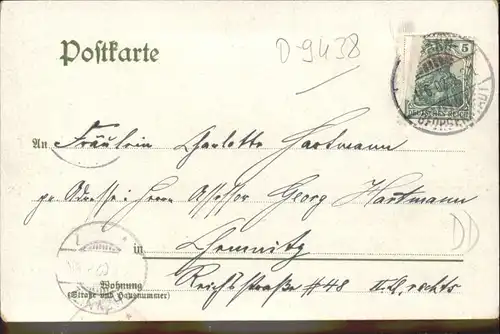 D-9438
Postkarte
5
DEUTSCHES REICH
An Fräulein Charlotte Hartmann
pr. Adresse: Herrn Assessor Georg Hartmann
in Chemnitz
Reichsstraße #48 II. rechts
Wohnung
(Straße und Hausnummer)